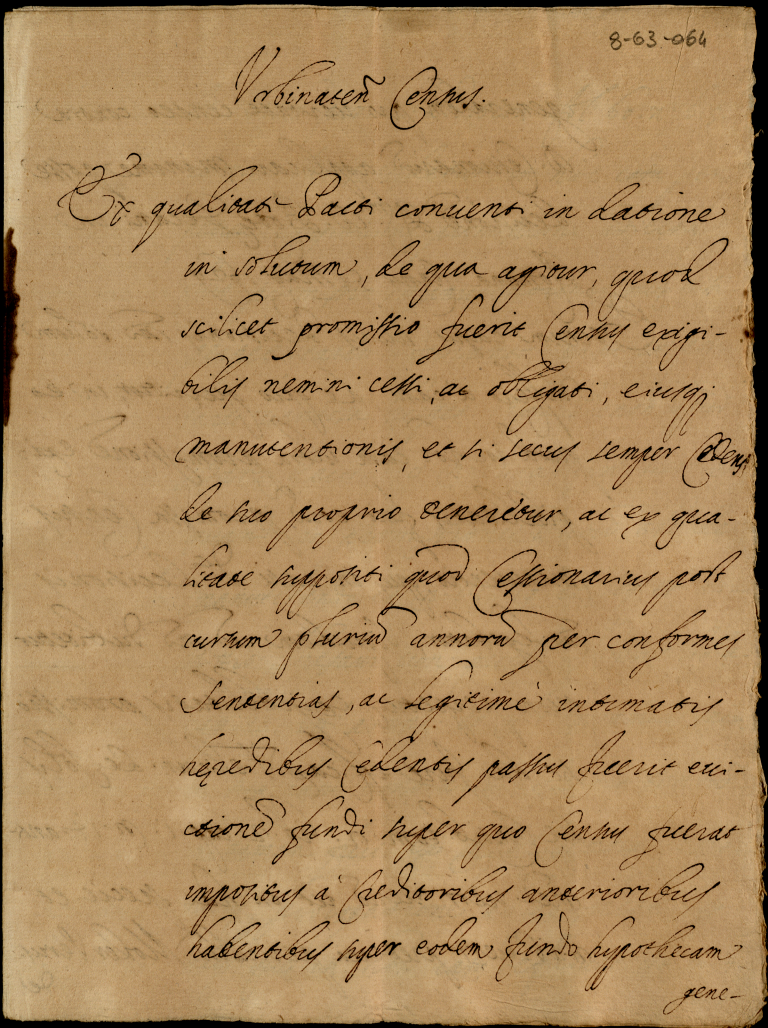 8-63-064
Urbinaten̄ Census.
Ex qualitate Pacti conuenti in datione
in solutum, de qua agitur, quod
scilicet promissio fuerit Census exigi-
bilis nemini cessi, ac obligati, eiusq;
manutentionis, et si secus semper Cedens
de suo proprio teneretur, ac ex qua-
litate suppositi quod Cessionarius post
cursum pluriū annorū per conformes
Sententias, ac legitimè intimatis
hęredibus Cedentis passus fuerit eui-
ctionē fundi super quo Census fuerat
impositus à Creditoribus anterioribus
habentibus super eodem fundo hypothecam
gene-